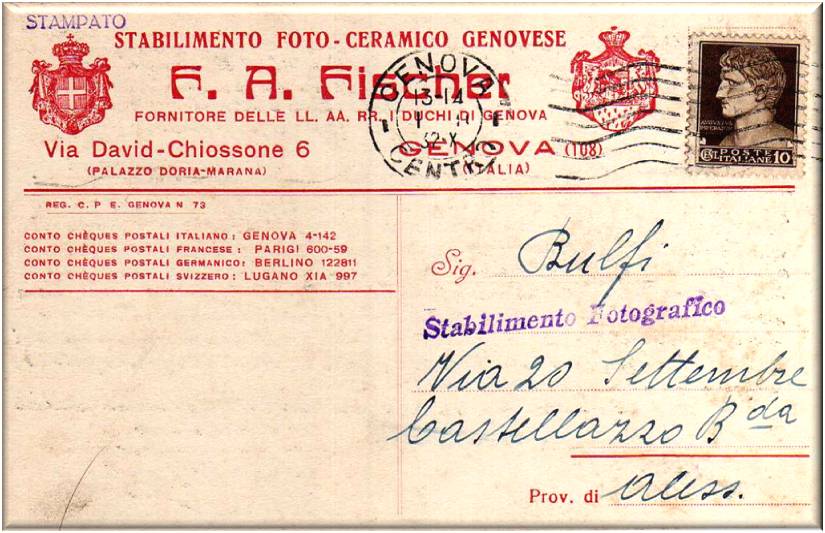 STAMPATO
STABILIMENTO FOTO-CERAMICO GENOVESE
F. A. Fischer
FORNITORE DELLE LL. AA. RR. I DUCHI DI GENOVA
Via David-Chiossone 6 GENOVA (108)
(PALAZZO DORIA-MARANA) (ITALIA)
GENOVA
13-14
32-X
CENTRO
POSTE
ITALIANE 10
REG. C. P. E. GENOVA N 73
CONTO CHÈQUES POSTALI ITALIANO: GENOVA 4-142
CONTO CHÈQUES POSTALI FRANCESE: PARIGI 600-59
CONTO CHÈQUES POSTALI GERMANICO: BERLINO 122811
CONTO CHÈQUES POSTALI SVIZZERO: LUGANO XIA 997
Sig. Bulfi
Stabilimento Fotografico
Via 20 Settembre
Castellazzo Bda
Prov. di Aless.